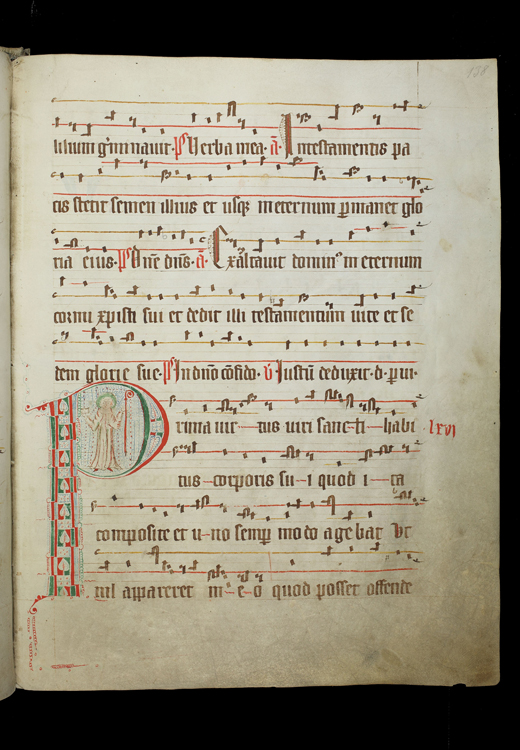 138
lilium germinauit · Ps Verba mea · a̅ · In testamentis pa
tis stetit semen illius et usq; in eternum p̲manet glo
ria eius · Ps Dn̅e dn̅s · a̅ · Exaltauit domin⁹ in eternum
cornu xpisti sui et dedit illi testamentum uite et se
dem glorie sue · Ps In dn̅o co̅fido · v̅ Iustu̅ deduxit · d · p̲ ui ·
Prima uir — tus uiri sanc — ti — habi lxvi
tus — corporis su — i quod i — ta
composite et u — no semp̲ modo agebat Vt
nil appareret in — e — o quod posset offende